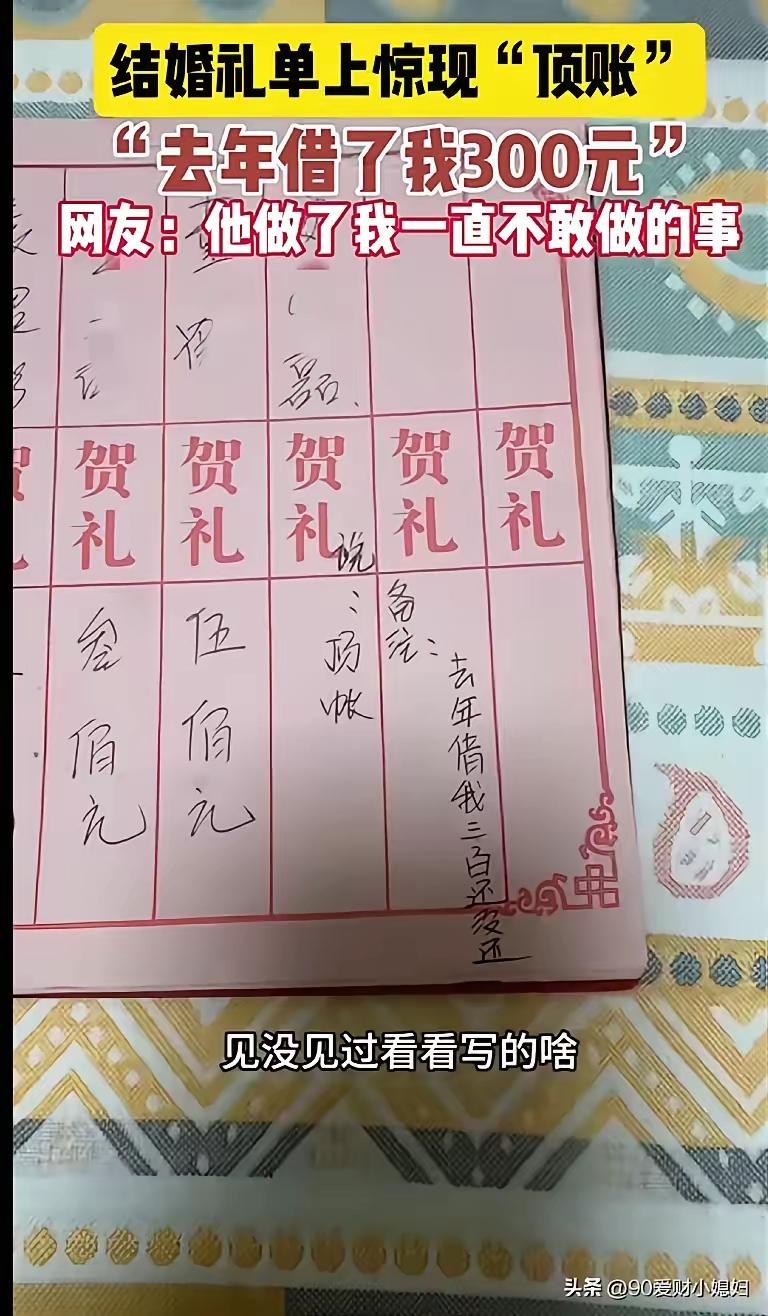 结婚礼单上惊现“顶账”
“去年借了我300元”
网友：他做了我一直不敢做的事
磊、
贺礼
贺礼
贺礼
贺礼
贺礼
叁佰元
伍佰元
说：顶帐
备注：
去年借我三百还没还
见没见过看看写的啥
头条 @90爱财小媳妇